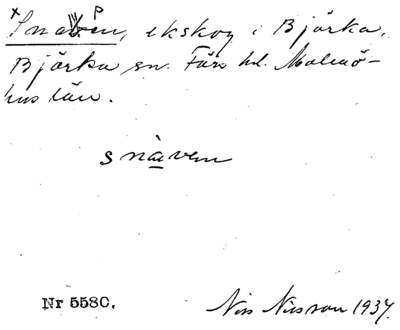 x Snaven, ekskog i Bjärka,
Bjärka sn. Färs hd. Malmö-
hus län.
snàvem
Nr 5580. Nils Nilsson 1937.